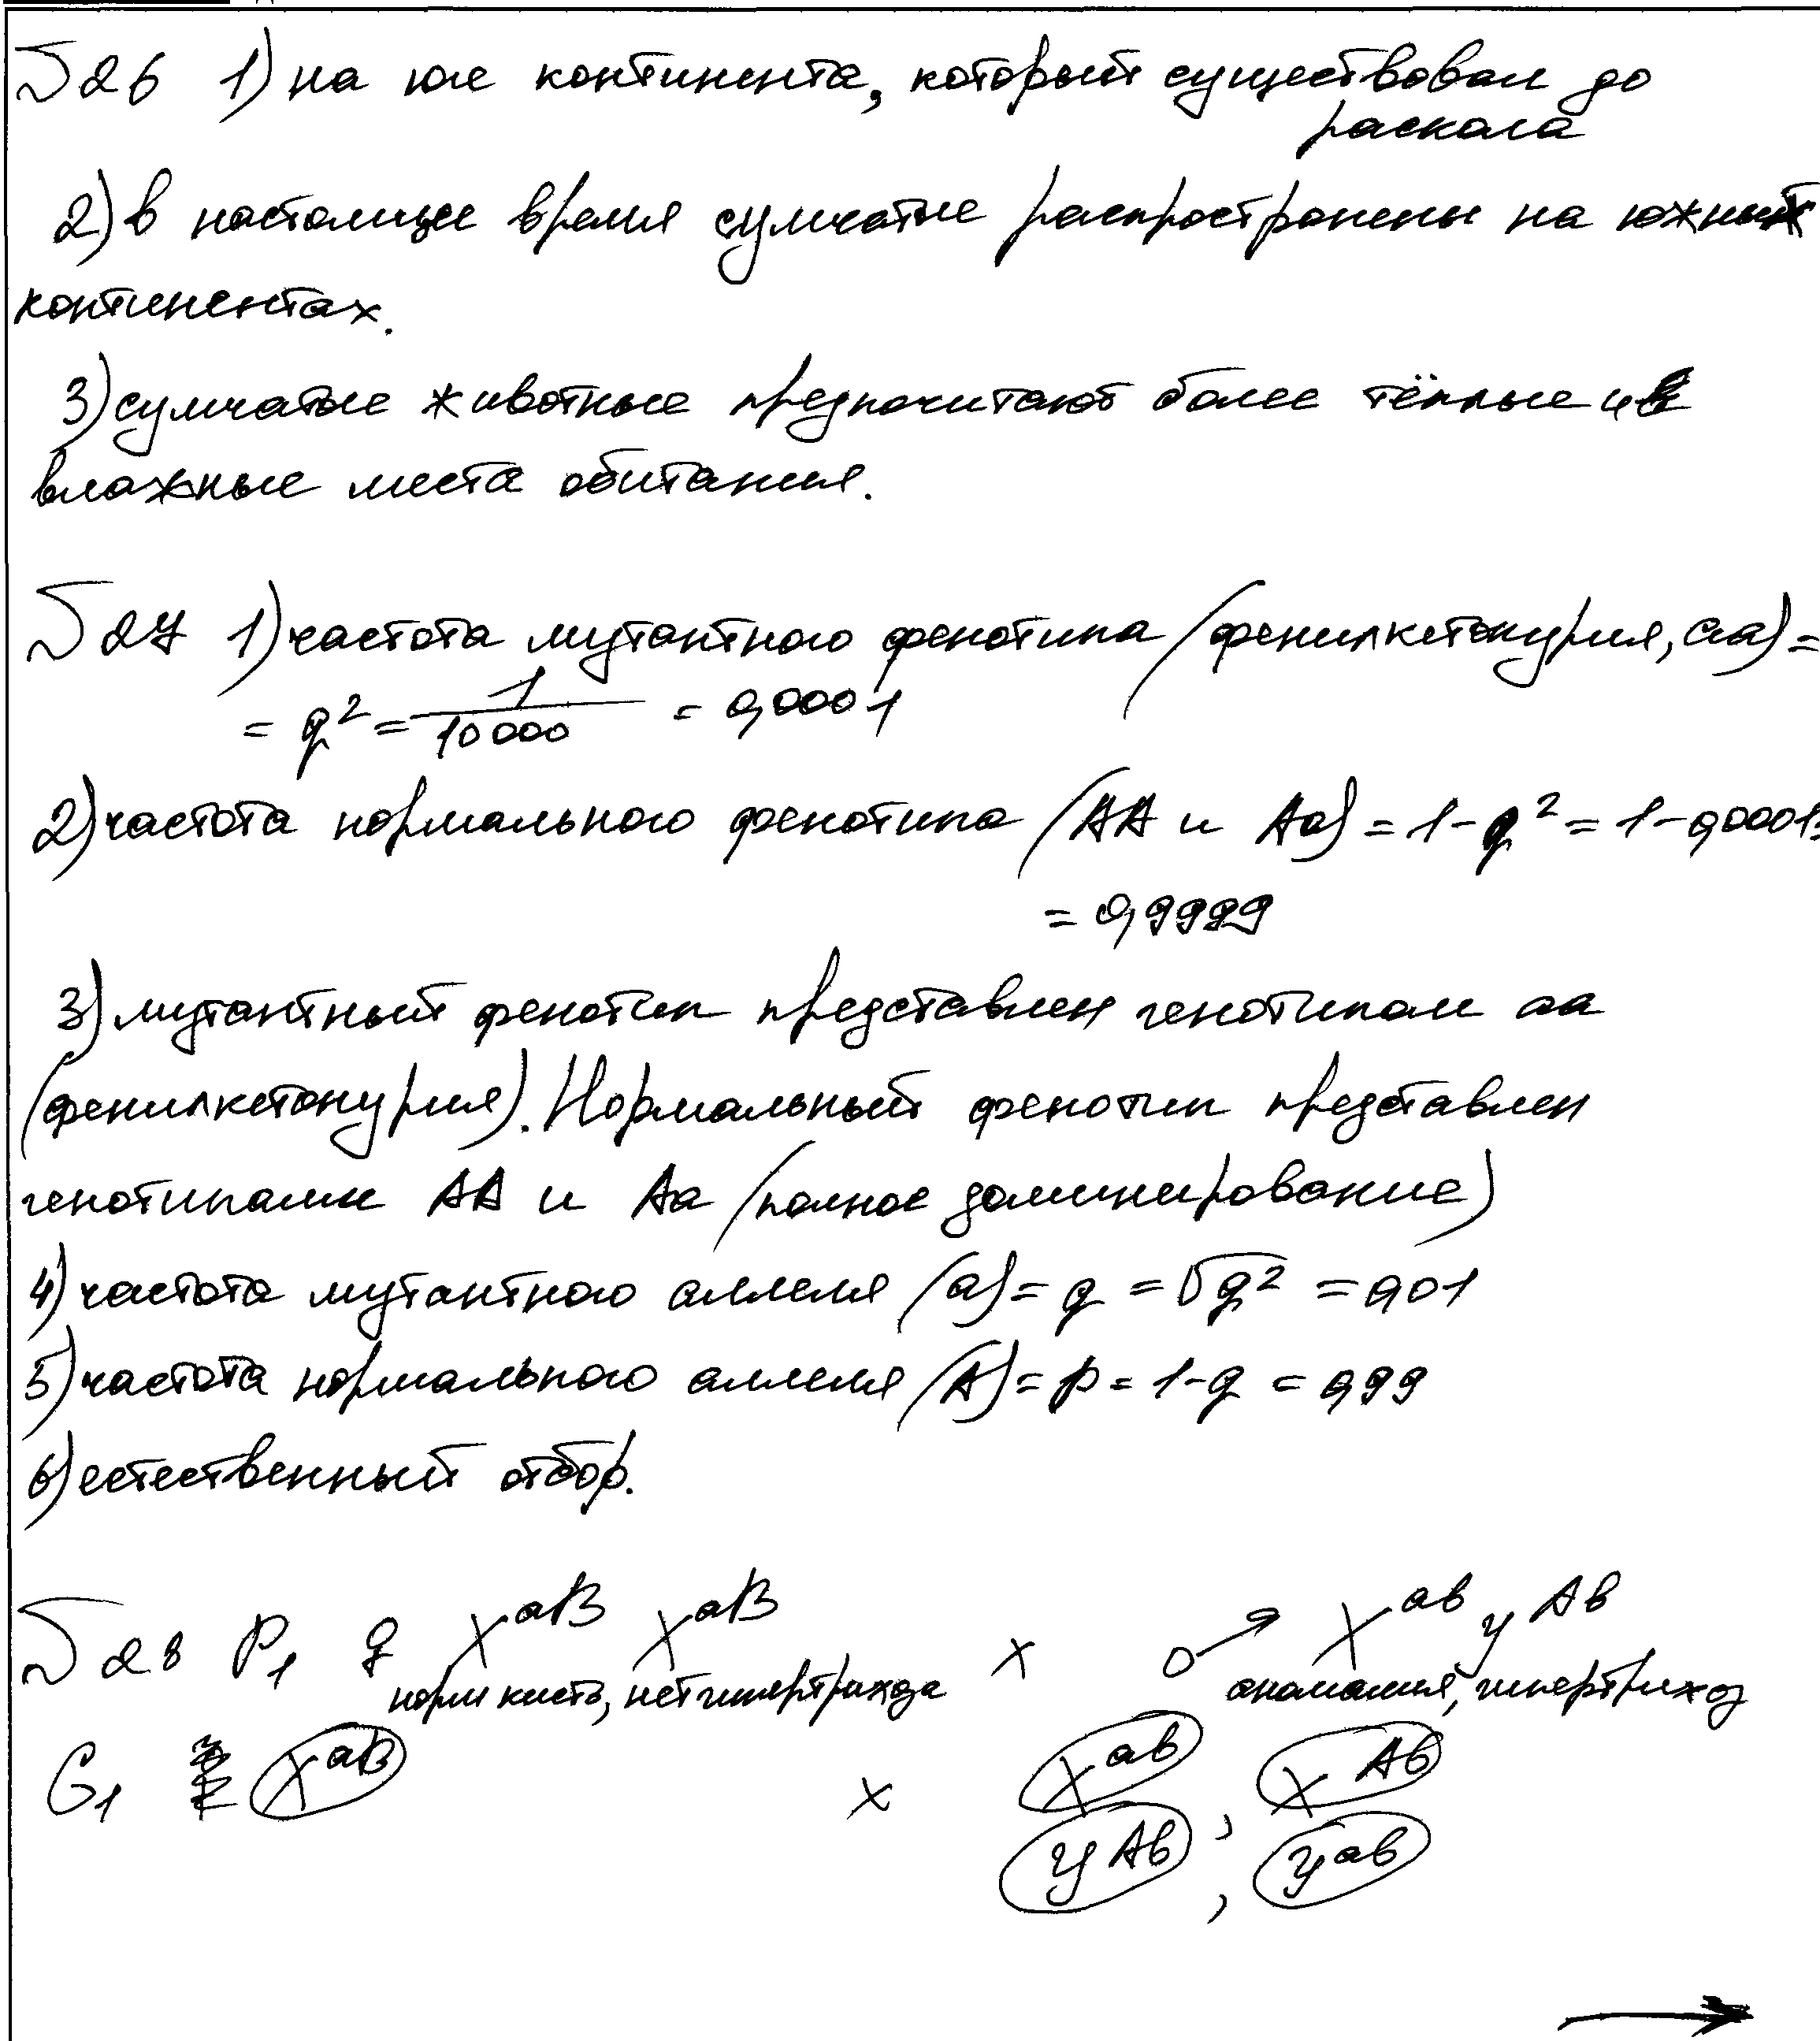 №26 1) на юге континента, который существовал до
раскола
2) в настоящее время сумчатые распространены на южных
континентах.
3) сумчатые животные предпочитают более тёплые и
влажные места обитания.
№27 1) частота мутантного фенотипа (фенилкетонурия, аа) =
= q² = 1/10000 = 0,0001
2) частота нормального фенотипа (АА и Аа) = 1-q² = 1-0,0001=
= 0,9999
3) мутантный фенотип представлен генотипом аа
(фенилкетонурия). Нормальный фенотип представлен
генотипами АА и Аа (полное доминирование)
4) частота мутантного аллеля (а) = q = √q² = 0,01
5) частота нормального аллеля (А) = p = 1-q = 0,99
6) естественный отбор.
№28 P₁ ♀ X^aB X^aB x ♂ X^ab y^Ab
норм кисть, нет гипертрихоза аномалия, гипертрихоз
G₁ X^aB x X^ab, X^Ab
y^Ab, y^ab